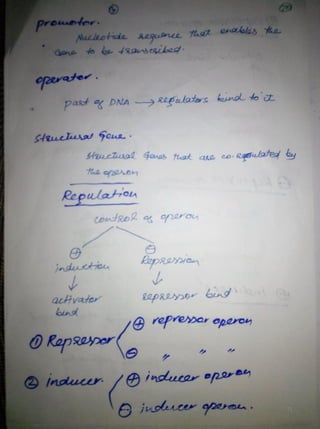 promotor.
Nucleotide sequence that enables the
Gene to be transcribed.
operator.
part of DNA → regulators bind to it
Structural Gene.
Structural Genes that are co-regulated by
the operon
Regulation
control of operon
⊕ ⊖
induction Repression
↓ ↓
activator repressor bind
bind
① Repressor ⊕ repressor operon
⊖ " " "
② inducer. ⊕ inducer operon
⊖ inducer operon.